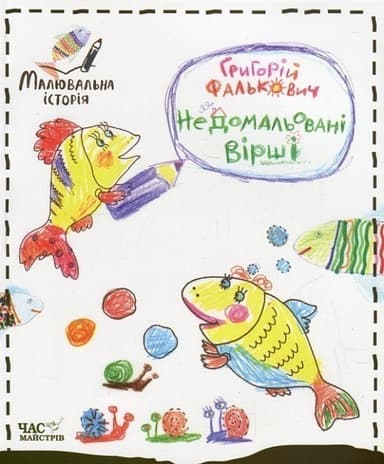 Малювальна
історія
Григорій
Фалькович
Недомальовані
вірші
ЧАС
МАЙСТРІВ